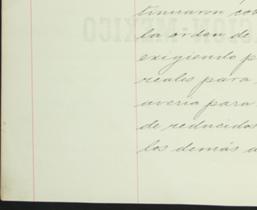 tinuaron cob
la orden de
exigiendo p
reales para
avería para
de reducidos
los demás a